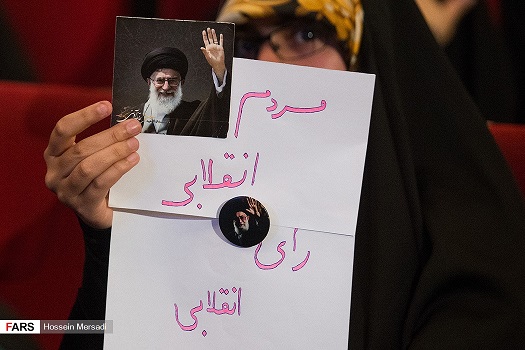 مردم
انقلابی
رای
انقلابی
FARS Hossein Mersadi